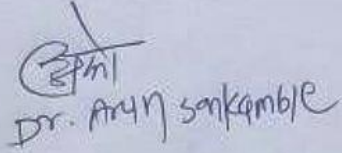 Dr. Arun sonkamble